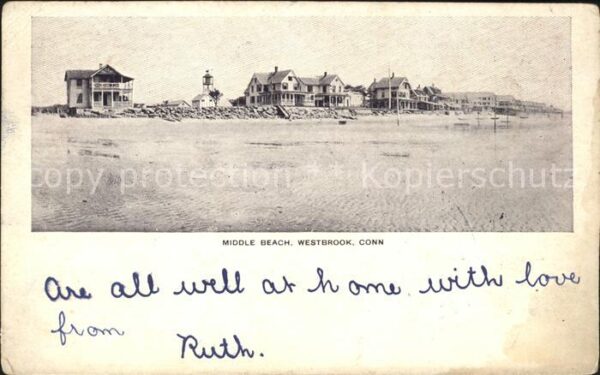 copy protection Kopierschutz
MIDDLE BEACH, WESTBROOK, CONN
Are all well at home with love
from
Ruth.